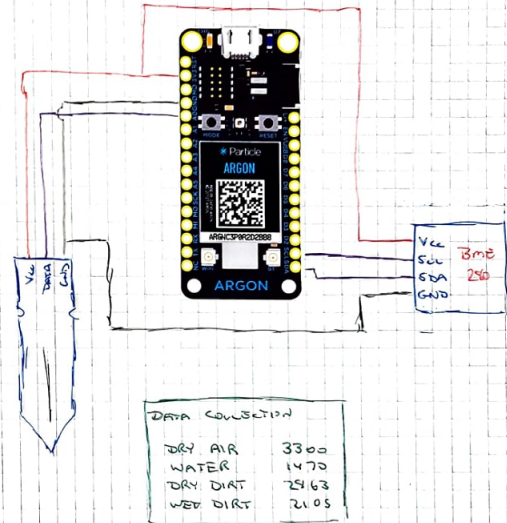 MODE
RESET
Particle
ARGON
ARGON
Vcc
DATA
GND
Vcc
SCL
SDA
GND
BME
280
DATA COLLECTION
DRY AIR 3300
WATER 1470
DRY DIRT 2463
WET DIRT 2105